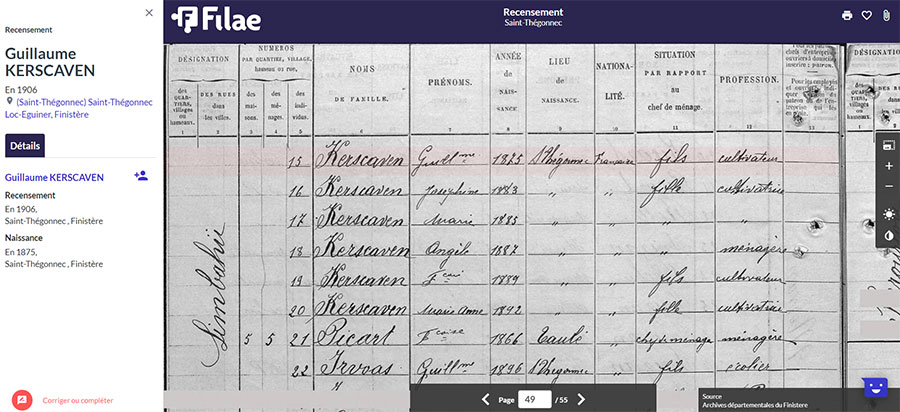 Recensement
Guillaume
KERSCAVEN
En 1906
(Saint-Thégonnec) Saint-Thégonnec
Loc-Eguiner, Finistère
Détails
Guillaume KERSCAVEN
Recensement
En 1906,
Saint-Thégonnec , Finistère
Naissance
En 1875,
Saint-Thégonnec , Finistère
Corriger ou compléter
Filae
Recensement
Saint-Thégonnec
DÉSIGNATION
des QUARTIERS, villages ou hameaux.
DES RUES dans les villes.
NUMEROS
PAR QUARTIER, VILLAGE, hameau ou rue,
des maisons.
des ménages.
des individus.
NOMS
DE FAMILLE.
PRÉNOMS.
ANNÉE de NAISSANCE
LIEU de NAISSANCE.
NATIONALITÉ.
SITUATION PAR RAPPORT au chef de ménage.
PROFESSION.
DÉSIGNATION
1 2 3 4 5 6 7 8 9 10 11 12 13
15 Kerscaven Guillme 1875 St Thégonnec Française fils cultivateur
16 Kerscaven Joséphine 1883 " " fille cultivatrice
17 Kerscaven Marie 1885 " " " "
18 Kerscaven Angèle 1887 " " " ménagère
19 Kerscaven 1889 " " fils cultivateur
20 Kerscaven Marie Anne 1892 " " fille cultivatrice
5 5 21 Picart 1866 Taulé " chef de ménage ménagère
22 Guillme 1896 St Thégonnec " fils écolier
Page 49 / 55
Source
Archives départementales du Finistere